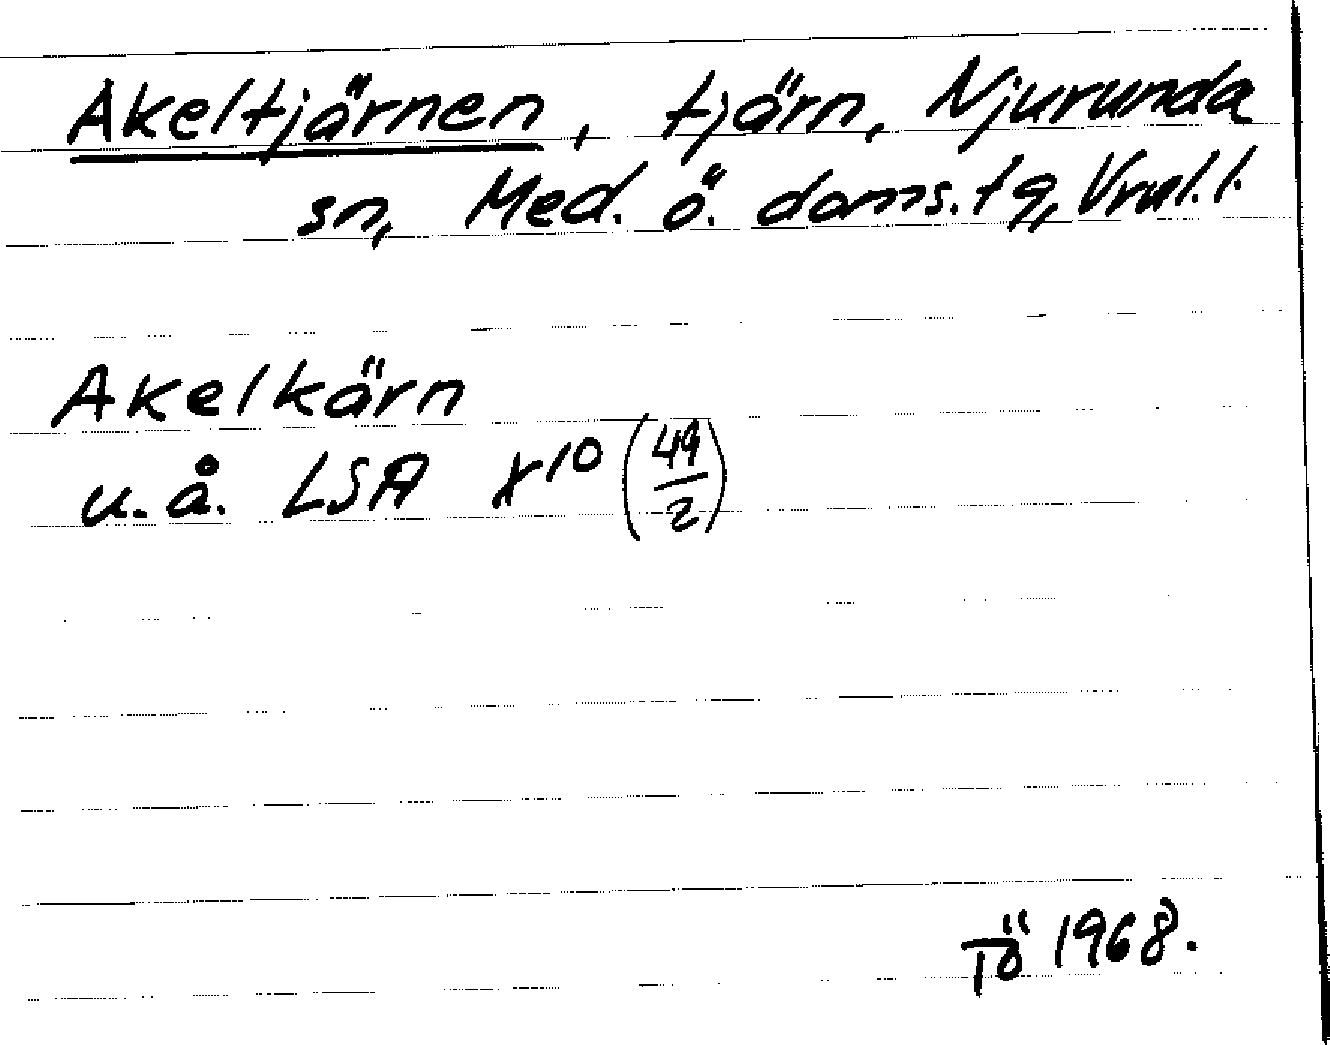 Akeltjärnen, tjärn, Njurunda
sn, Med. ö. doms. tg, Vrnl. l.
Akelkärn
u. å. LSA X 10 (49/2)
TÖ 1968.